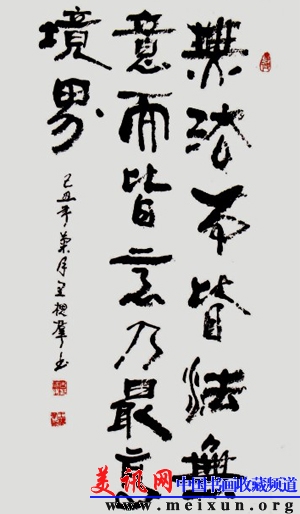 無法而皆法無
意而皆意乃最高
境界
己丑年菊月王
美讯网 中国书画收藏频道
www.meixun.org